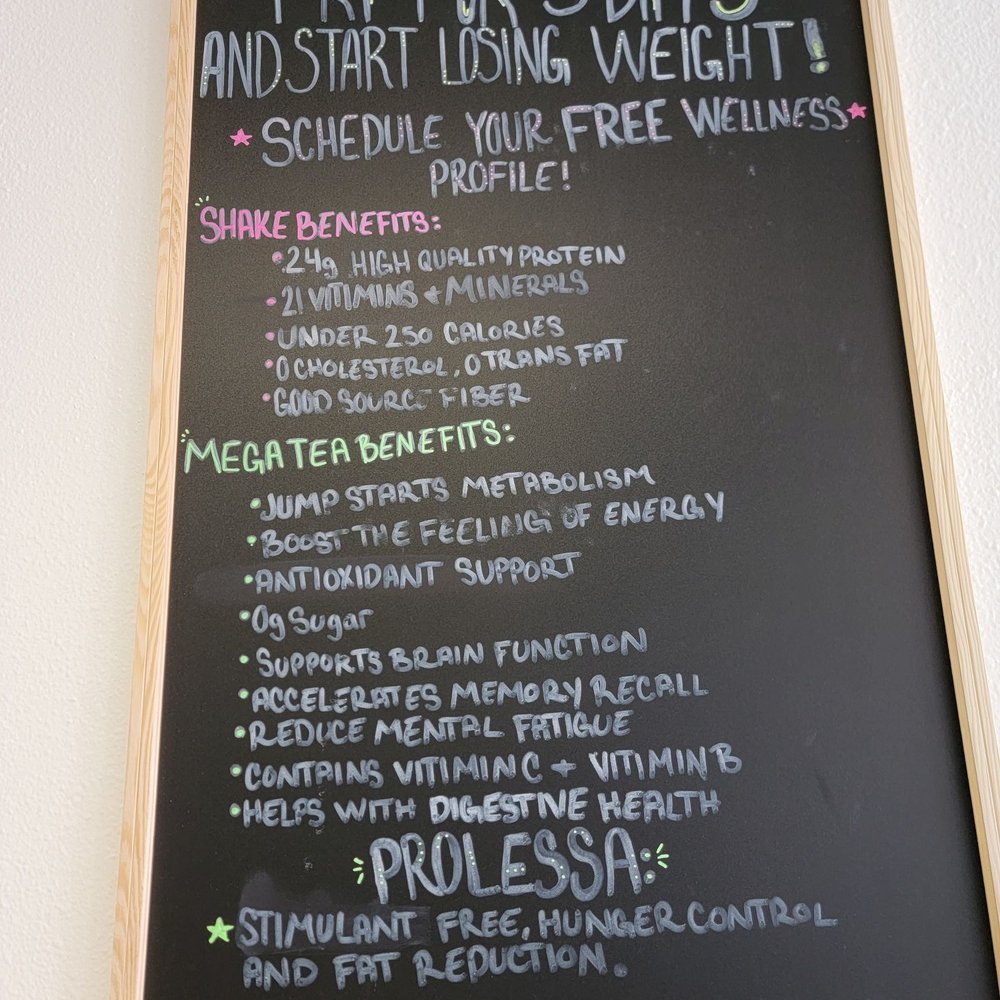 AND START LOSING WEIGHT!
SCHEDULE YOUR FREE WELLNESS
PROFILE!
SHAKE BENEFITS:
•24g HIGH QUALITY PROTEIN
•21 VITIMINS + MINERALS
•UNDER 250 CALORIES
•0 CHOLESTEROL, 0 TRANS FAT
•GOOD SOURCE FIBER
MEGA TEA BENEFITS:
•JUMP STARTS METABOLISM
•BOOST THE FEELING OF ENERGY
•ANTIOXIDANT SUPPORT
•0g Sugar
•SUPPORTS BRAIN FUNCTION
•ACCELERATES MEMORY RECALL
•REDUCE MENTAL FATIGUE
•CONTAINS VITIMIN C + VITIMIN B
•HELPS WITH DIGESTIVE HEALTH
PROLESSA:
STIMULANT FREE, HUNGER CONTROL
AND FAT REDUCTION.